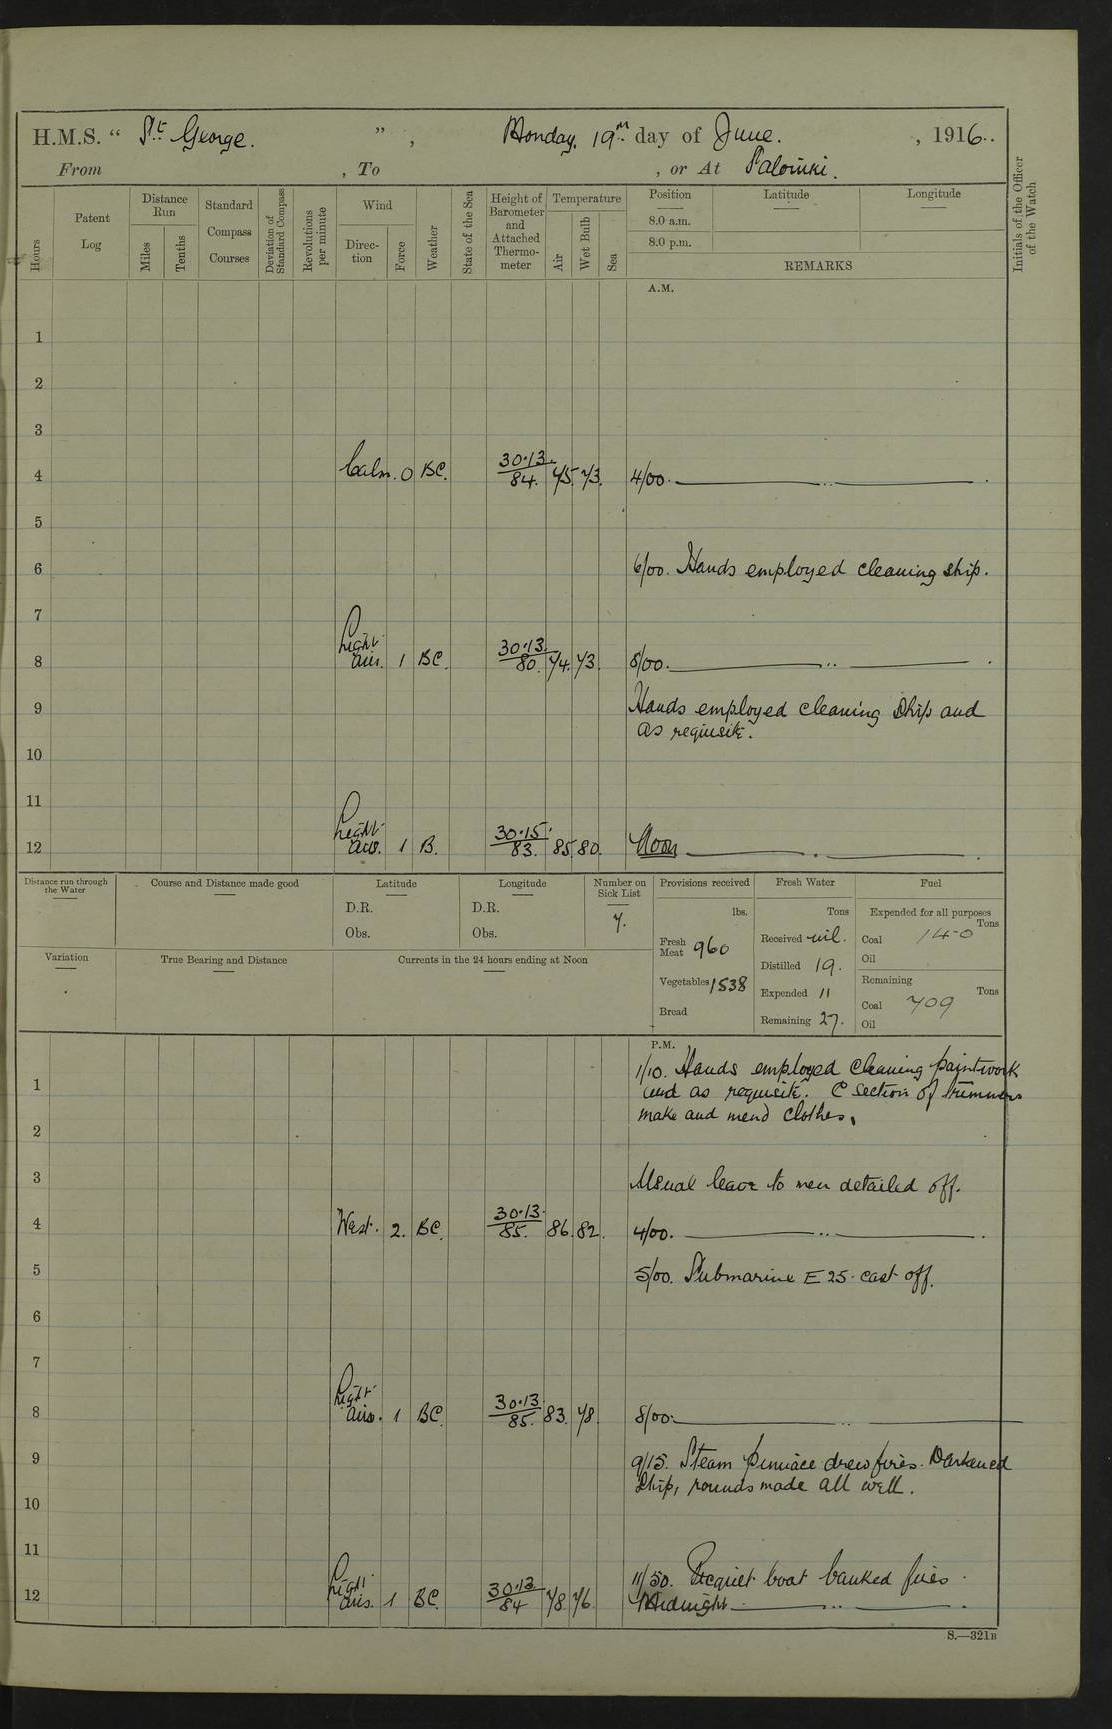 H.M.S. “ St George. ” , Monday, 19th day of June. , 1916..
From , To , or At Saloniki.
Hours
Patent Log
Distance Run
Miles
Tenths
Standard Compass Courses
Deviation of Standard Compass
Revolutions per minute
Wind
Direc-tion
Force
Weather
State of the Sea
Height of Barometer and Attached Thermo-meter
Temperature
Air
Wet Bulb
Sea
Position
8.0 a.m.
8.0 p.m.
Latitude
Longitude
REMARKS
Initials of the Officer of the Watch
A.M.
1
2
3
4 Calm. 0 BC. 30·13. 84. 75. 73. 4/00.
5
6 6/00. Hands employed cleaning ship.
7
8 Light airs. 1 BC. 30·13. 80. 74. 73. 8/00.
9 Hands employed cleaning ship and
as requisite.
10
11
12 Light airs. 1 B. 30·15. 83. 85. 80. Noon
Distance run through the Water
Course and Distance made good
Latitude
D.R.
Obs.
Longitude
D.R.
Obs.
Number on Sick List
7.
Provisions received
lbs.
Fresh Meat 960
Vegetables 1538
Bread
Fresh Water
Tons
Received nil.
Distilled 19.
Expended 11
Remaining 27.
Fuel
Expended for all purposes
Tons
Coal 140
Oil
Remaining
Tons
Coal 709
Oil
Variation
True Bearing and Distance
Currents in the 24 hours ending at Noon
P.M.
1 1/10. Hands employed cleaning paintwork
and as requisite. C section of trimmers
make and mend clothes.
2
3 Usual leave to men detailed off.
4 West. 2. BC. 30·13. 85. 86. 82. 4/00.
5 5/00. Submarine E 25. cast off.
6
7
8 Light airs. 1 BC. 30·13. 85. 83. 78. 8/00.
9 9/15. Steam pinnace drew fires. Darkened
ship, rounds made all well.
10
11 11/50. Picquet boat banked fires.
12 Light airs. 1 BC. 30·13. 84 78. 76. Midnight
S.—321B